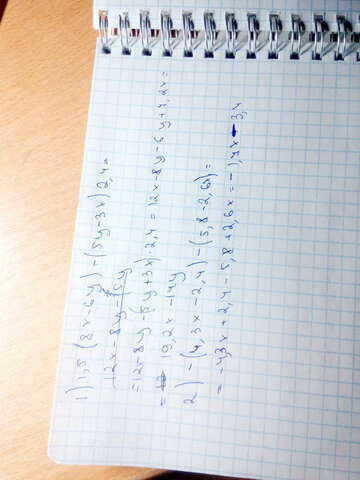 1) 1,5 (8x-6y) - (5y-3x) 2,4 =
12x - 8y - (5y
= 12 - 8y - (5y + 3x) · 2,4 = 12x - 8y - 6y + 7,2x =
= 12 19,2x - 14y
2) - (4,3x - 2,4) - (5,8 - 2,6x) =
= -4,3x + 2,4 - 5,8 + 2,6x = -1,7x - 3,4